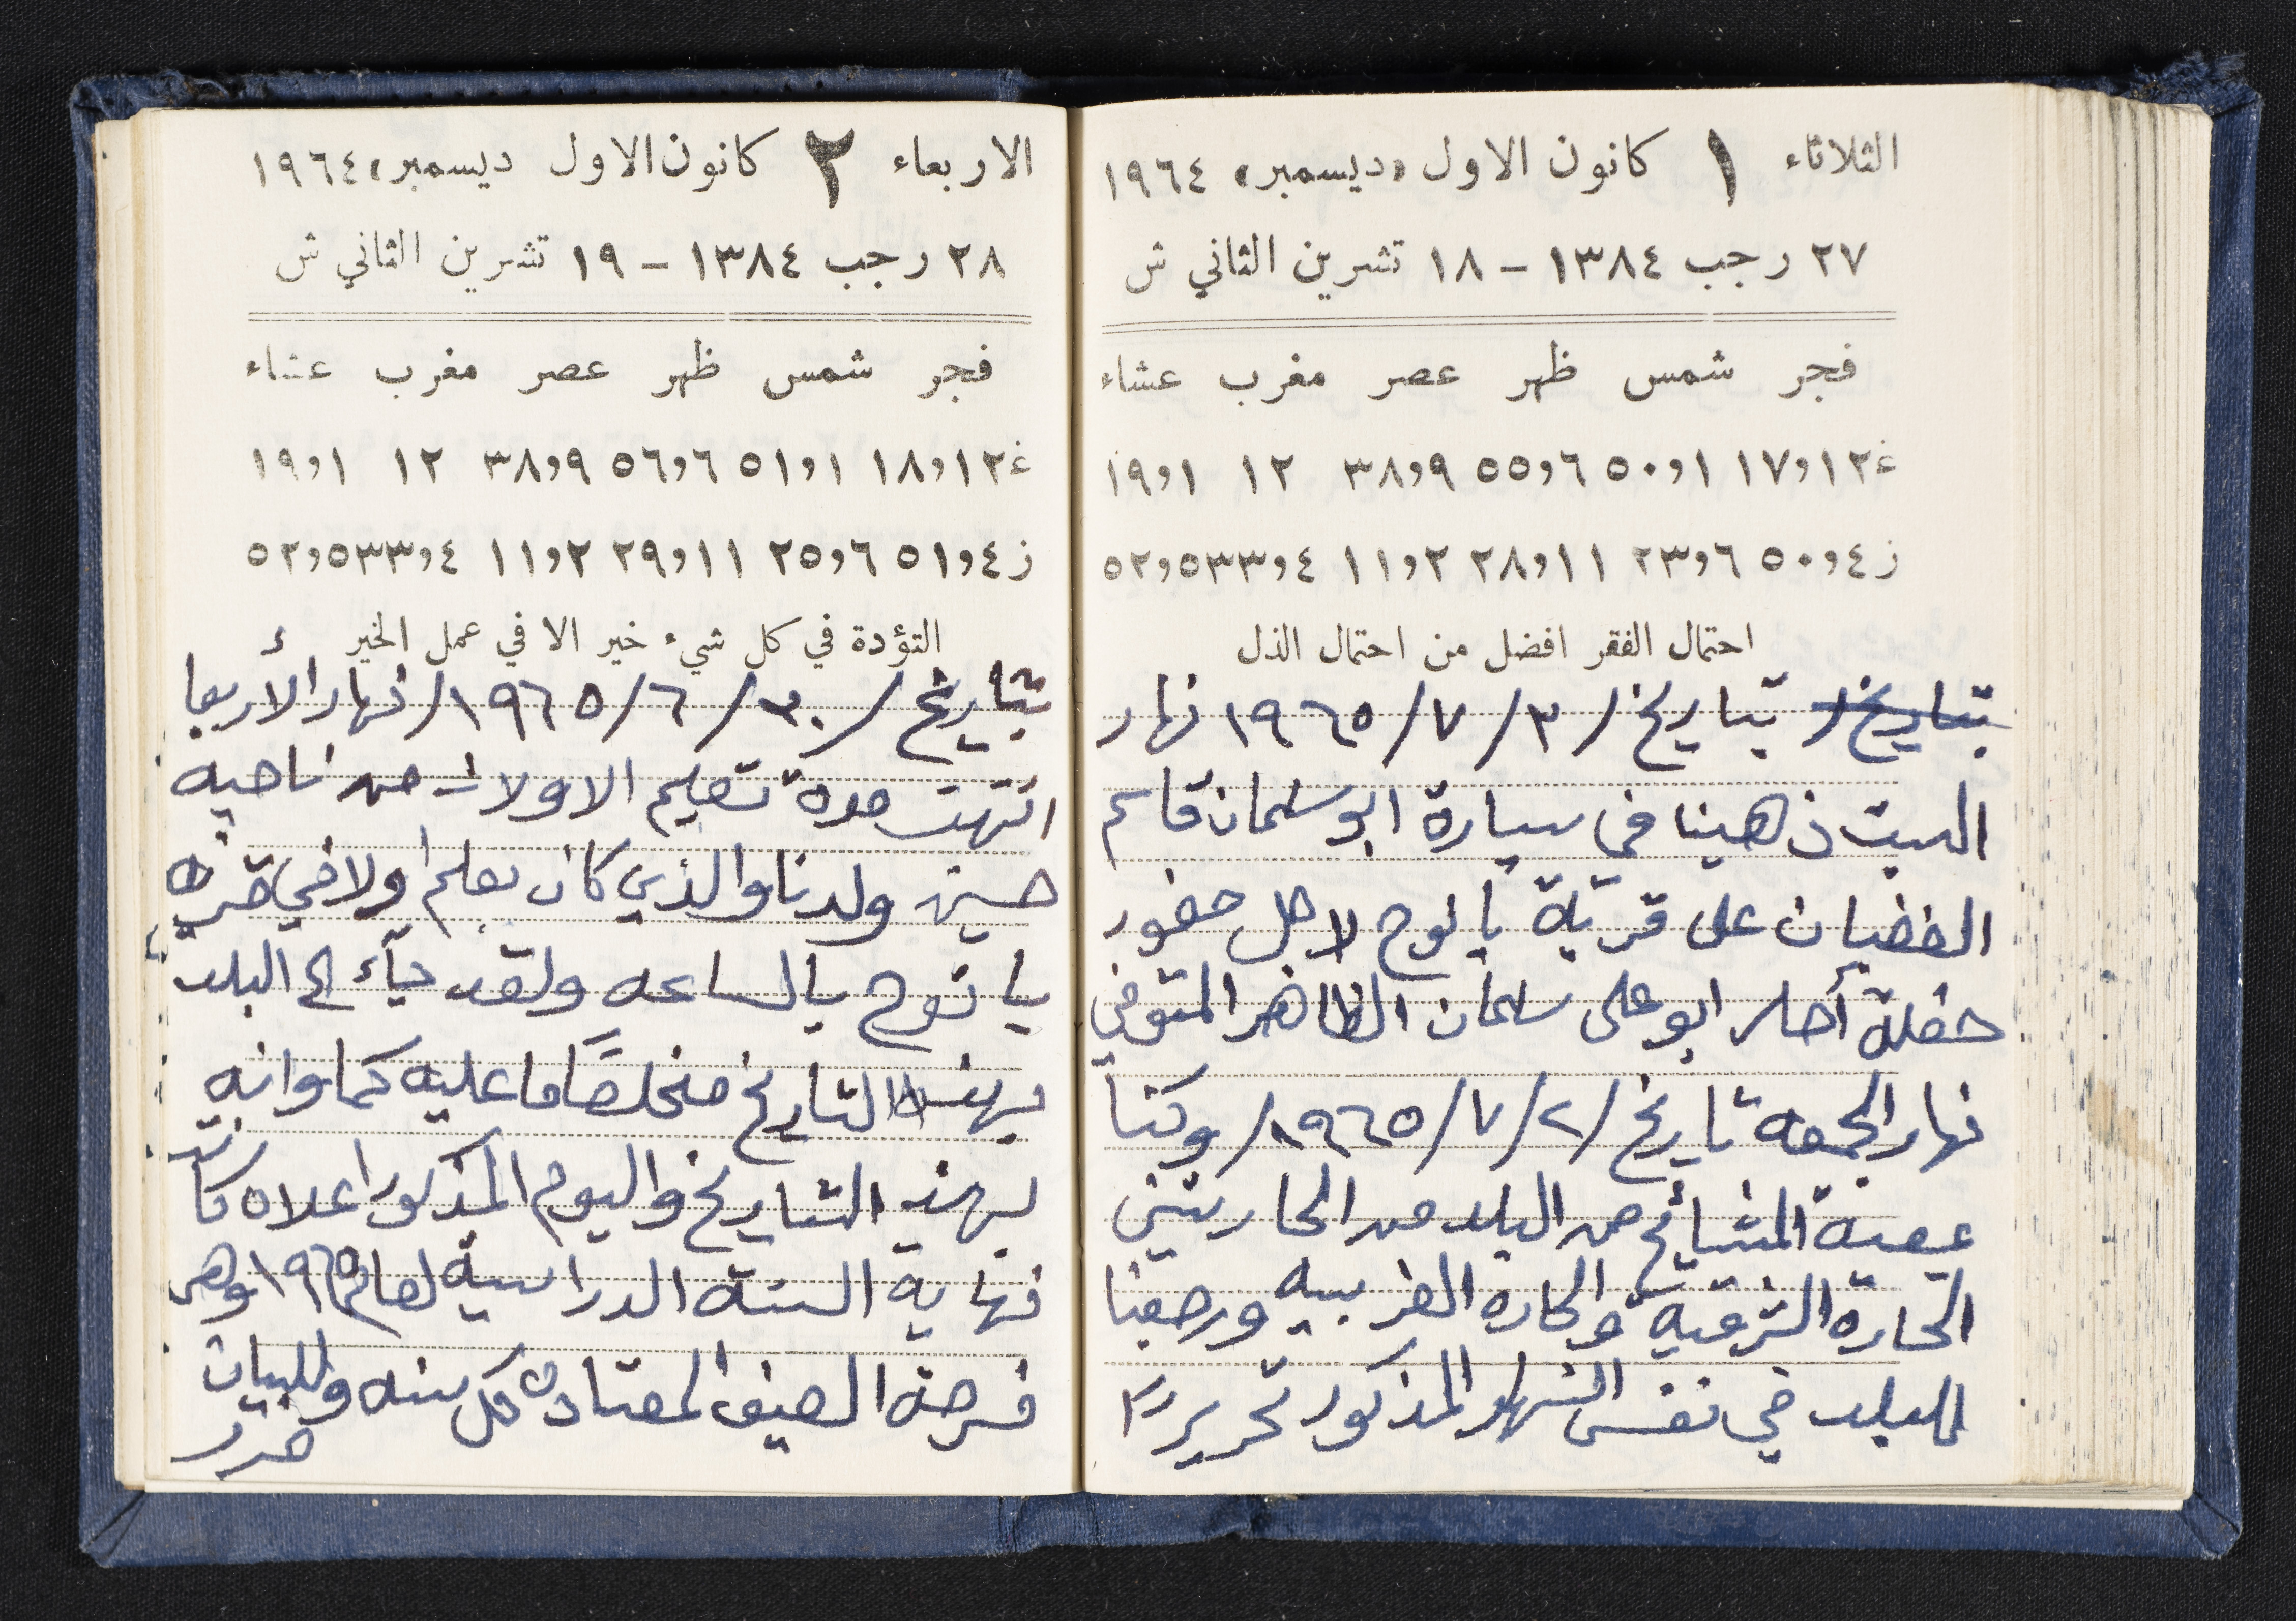 الثلاثاء ١ كانون الاول «ديسمبر» ١٩٦٤
٢٧ رجب ١٣٨٤ - ١٨ تشرين الثاني ش
فجر شمس ظهر عصر مغرب عشاء
غ ١٢و١٧ ١و٥٠ ٦و٥٥ ٩و٣٨ ١٢ ١و١٩
ز ٤و٥٠ ٦و٢٣ ١١و٢٨ ٢و١١ ٤و٣٣ ٥و٥٢
احتمال الفقر افضل من احتمال الذل
بتاريخ/ بتاريخ/ ٣/ ٧/ ١٩٦٥ نهار
السبت ذهبنا في سيارة ابو سلمان قاسم
الغضبان على قرية ياتوح لاجل حضور
حفلة أجار ابو علي سلمان الظاهر المتوفي
نهار الجمعه تاريخ/ ٢/ ٧/ ١٩٦٥/ وكنا
بمعية المشيائخ من البلد من الحارتين
الحاره الشرقية والحاره الغربيه ورجعنا
للبلد في نفس النهار المذكور تحريرا
الاربعاء ٢ كانون الاول ديسمبر» ١٩٦٤
٢٨ رجب ١٣٨٤ - ١٩ تشرين الثاني ش
فجر شمس ظهر عصر مغرب عشاء
غ ١٢و١٨ ١و٥١ ٦و٥٦ ٩و٣٨ ١٢ ١و١٩
ز ٤و٥١ ٦و٢٥ ١١و٢٩ ٢و١١ ٤و٣٣ ٥و٥٢
التؤدة في كل شيء خير الا في عمل الخير
بتاريخ/ ٣٠/ ٦/ ١٩٦٥/ نهار الأربعاء
انتهت مدة تعليم الاولاد من ناحيه
حسين ولدنا والذي كان يعلم اولا في قرية
يا نوح بالساعه ولقد جآء الى البلد
بهذا التاريخ مخلصًا ما عليه كما وانه
بهذه التاريخ واليوم المذكور اعلاه كانت
نهاية السنة الدراسية لعام ١٩٦٥ وهي
فرصة الصيف المعتاده كل سنه وللبيان
حرر